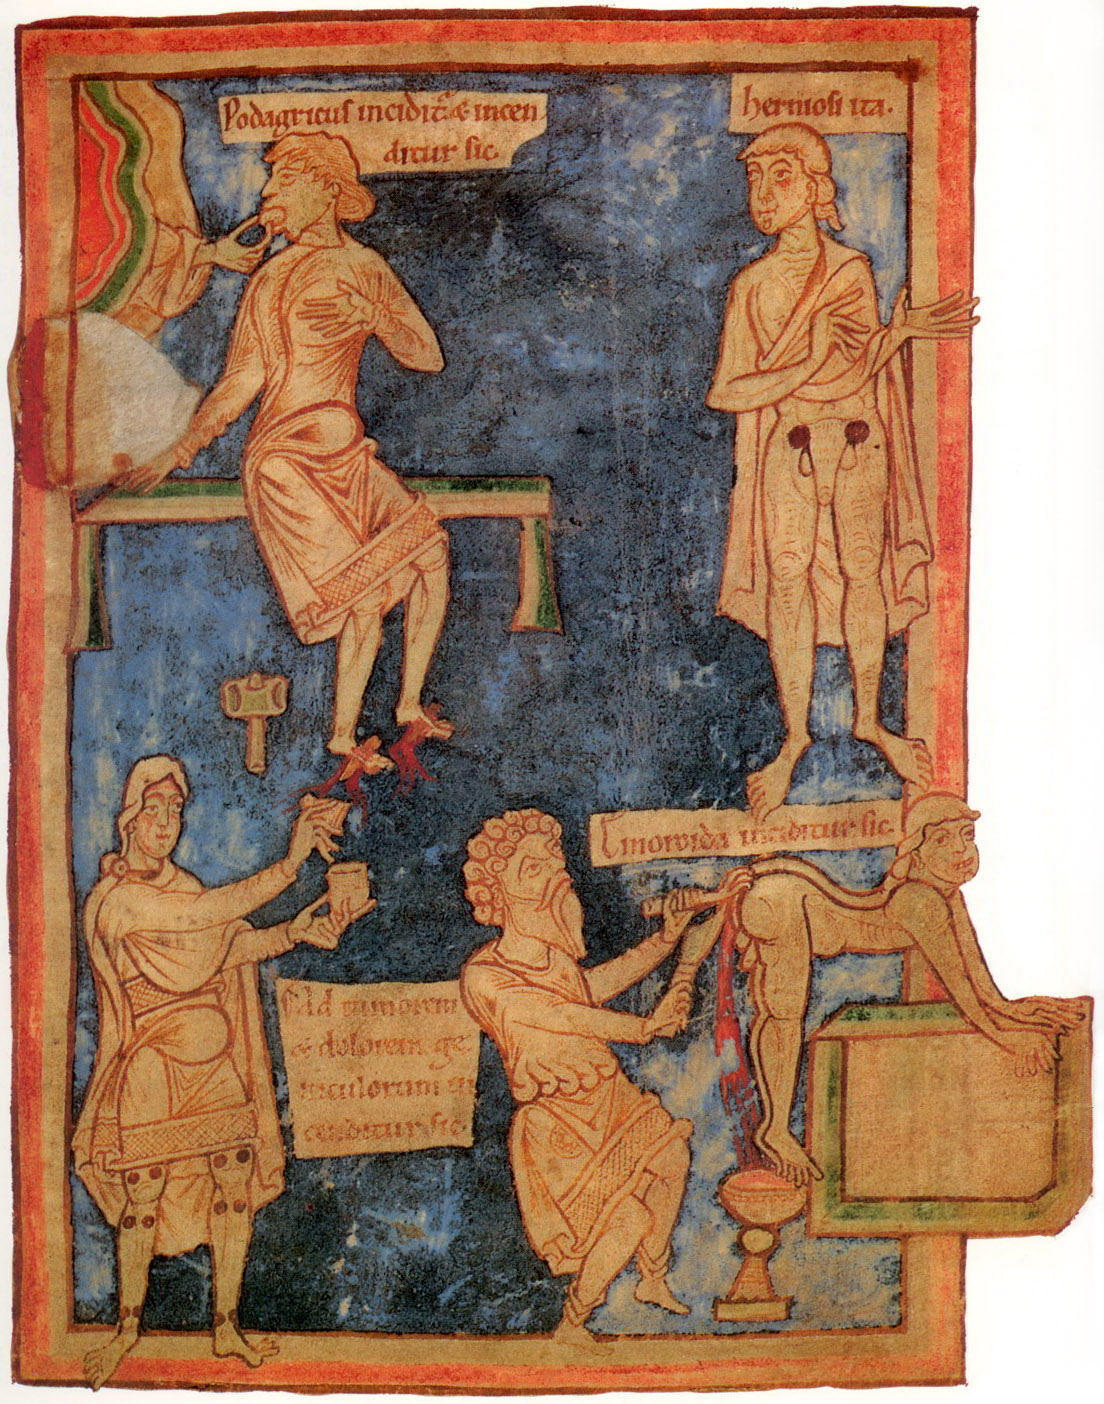 Podagricus inciditᷣ & incen
ditur sic.
hermosi ita.
Emoroida inciditur sic.
Ad tumorem
& dolorem ge
niculorum in
cenditur sic.